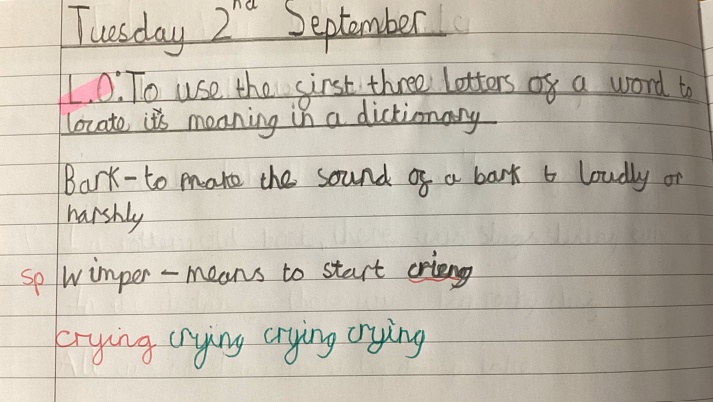 Tuesday 2nd September
L.O: To use the first three letters of a word to
locate it's meaning in a dictionary
Bark - to make the sound of a bark to loudly or
harshly
sp Wimper - means to start crieng
crying crying crying crying